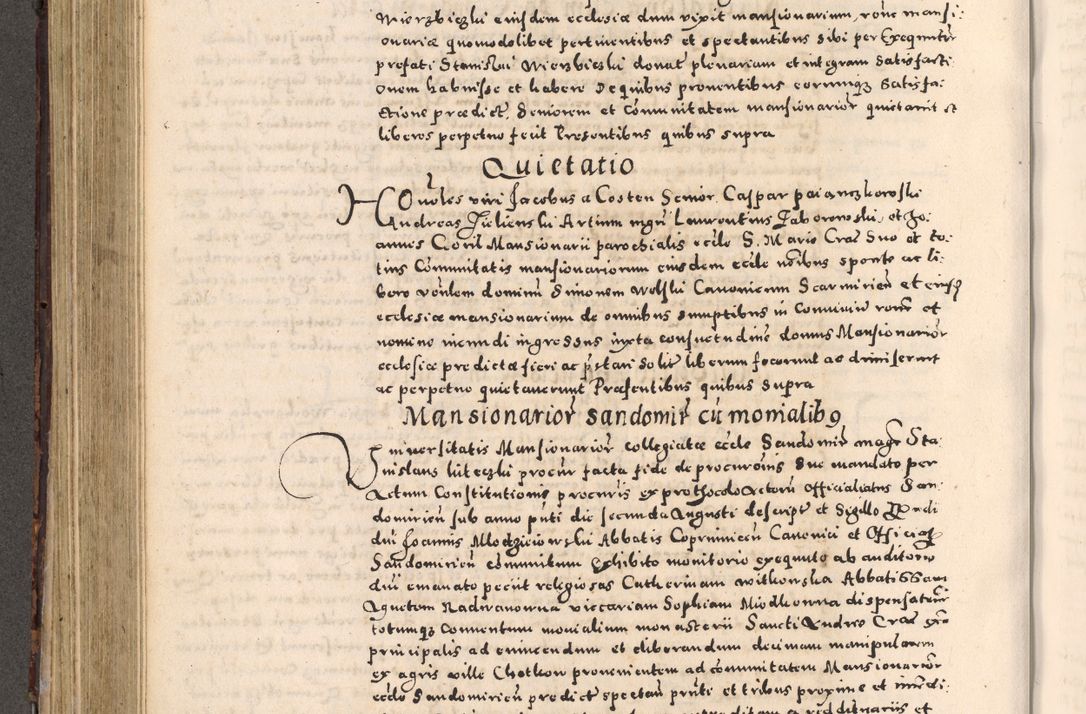 Wierzbiczki eiusdem ecclesiæ dum vixit mansionarium, rone mansi:
onariæ quomodolibet pertinentibus et spectantibus sibi per Exequutũr
prefati Stanislai Wierzbiczki donat plenariam et integram satisfacti:
onem habuisse et habere de quibus prouentibus eorumq3 satisfa:
ctione prædict, seniorem et Communitatem mansionarior quietauit et
liberos perpetuo fecit Presentibus quibus supra
Quietatio
Honobles viri Jacobus a Costen Senior, Caspar paianczkowski
Andreas Julienski Artium mgri Laurentius Jaborowski, et Jo:
annes Coril Mansionarii parochialis eccle S. Mariæ Crac suo et to:
tius Communitatis mansionariorum eiusdem eccle noibus sponte ac li:
bere venlem dominũ Simonem Wolski Canonicum Scarmirien et eiusd
ecclesiæ mansionarium de omnibus sumptibus in conuiuiũ rone et
nomine incundi ingressus iuxta consuetudinẽ domus Mansionarior
ecclesiæ predictæ fieri ac pstari solitẽ liberum fecerunt ac dimiserunt
ac perpetuo quietauerunt Præsentibus quibus supra
Mansionarior sandomir cũ monialib9
Uniuersitatis Mansionarior collegiatæ eccle Sandomir magr Sta:
nislaus luteczki procur facta fide de procuronis sue mandato per
Actum Constitutionis procuris ex prothocolo Actorũ Officialiatus San:
domirieñ sub anno pnti die secunda Augusti descript et Sigillo Rndi
dni Joannis Mlodzieiowski Abbatis Copriuniceñ Canonici et Official
Sandomirieñ communitum Exhibito monitorio exequuto ab auditorio
dni emanato peciit religiosas Catherinam witkowska Abbatissam
Agnetem Radwanowna viccariam Sophiam Miodkonna dispensatric
totumq3 Conuentum monialium monasterii Sancti Andreæ Crac
principalis ad eiuicendum et diliberandum decimam manipularem
ex agris ville Chotkow prouenientem ad communitatem Mansionarior
eccle Sandomirieñ predict spectañ pnti et tribus proxime et immedi: